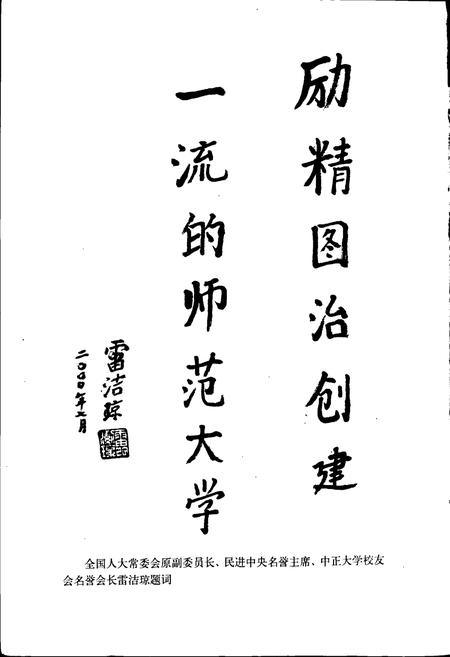 励精图治创建
一流的师范大学
雷洁琼
二〇〇〇年七月
全国人大常委会原副委员长、民进中央名誉主席、中正大学校友
会名誉会长雷洁琼题词